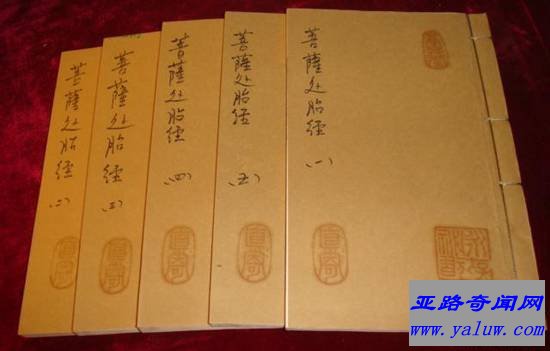 菩薩处胎經 (二)
菩薩处胎經 (三)
菩薩处胎經 (四)
菩薩处胎經 (五)
菩薩处胎經 (一)
亚路奇闻网
www.yaluw.com